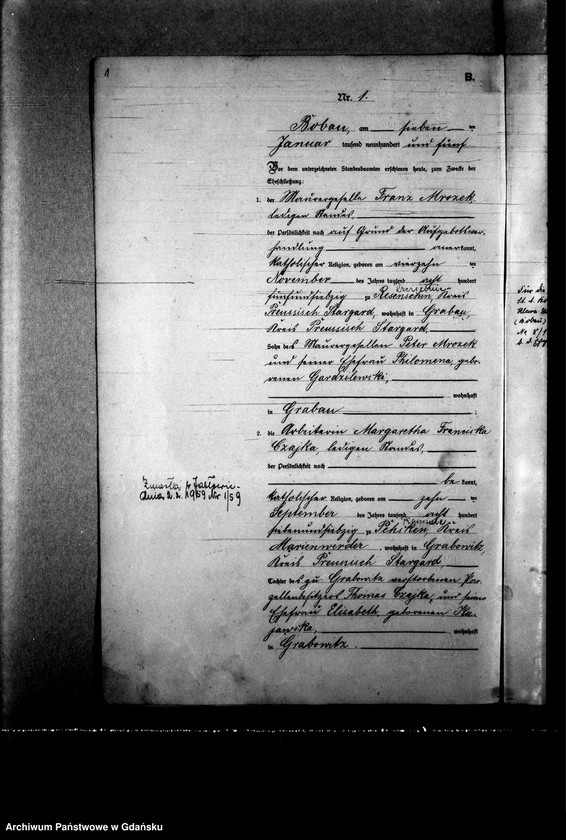 1
B.
Nr. 1.
Bobau, am sieben ten
Januar tausend neunhundert und fünf
Vor dem unterzeichneten Standesbeamten erschienen heute, zum Zwecke der
Eheschließung:
1. der Maurergeselle Franz Mrozek,
ledigen Standes,
der Persönlichkeit nach auf Grund der Aufgebotsver-
handlung anerkannt,
katholischer Religion, geboren am vierzehn ten
November des Jahres tausend acht hundert
fünfundsiebzig zu Resenschin, Kreis
Preussisch Stargard, wohnhaft in Grabau,
Kreis Preussisch Stargard,
Sohn des Maurergesellen Peter Mrozek
und seiner Ehefrau Philomena, gebo-
renen Gardzilewski,
wohnhaft
in Grabau ;
2. die Arbeiterin Margaretha Franciska
Czajka, ledigen Standes,
der Persönlichkeit nach
be kannt,
katholischer Religion, geboren am zehn ten
September des Jahres tausend acht hundert
siebenundsiebzig zu Pehsken, Kreis
Marienwerder, wohnhaft in Grabowitz,
Kreis Preussisch Stargard,
Tochter des zu Grabowitz verstorbenen Par-
zellenbesitzers Thomas Czajka, und seiner
Ehefrau Elisabeth, geborenen
wohnhaft
in Grabowitz.
Zmarła
dnia 2.2.1959 Nr 1/59
Für die
Archiwum Państwowe w Gdańsku